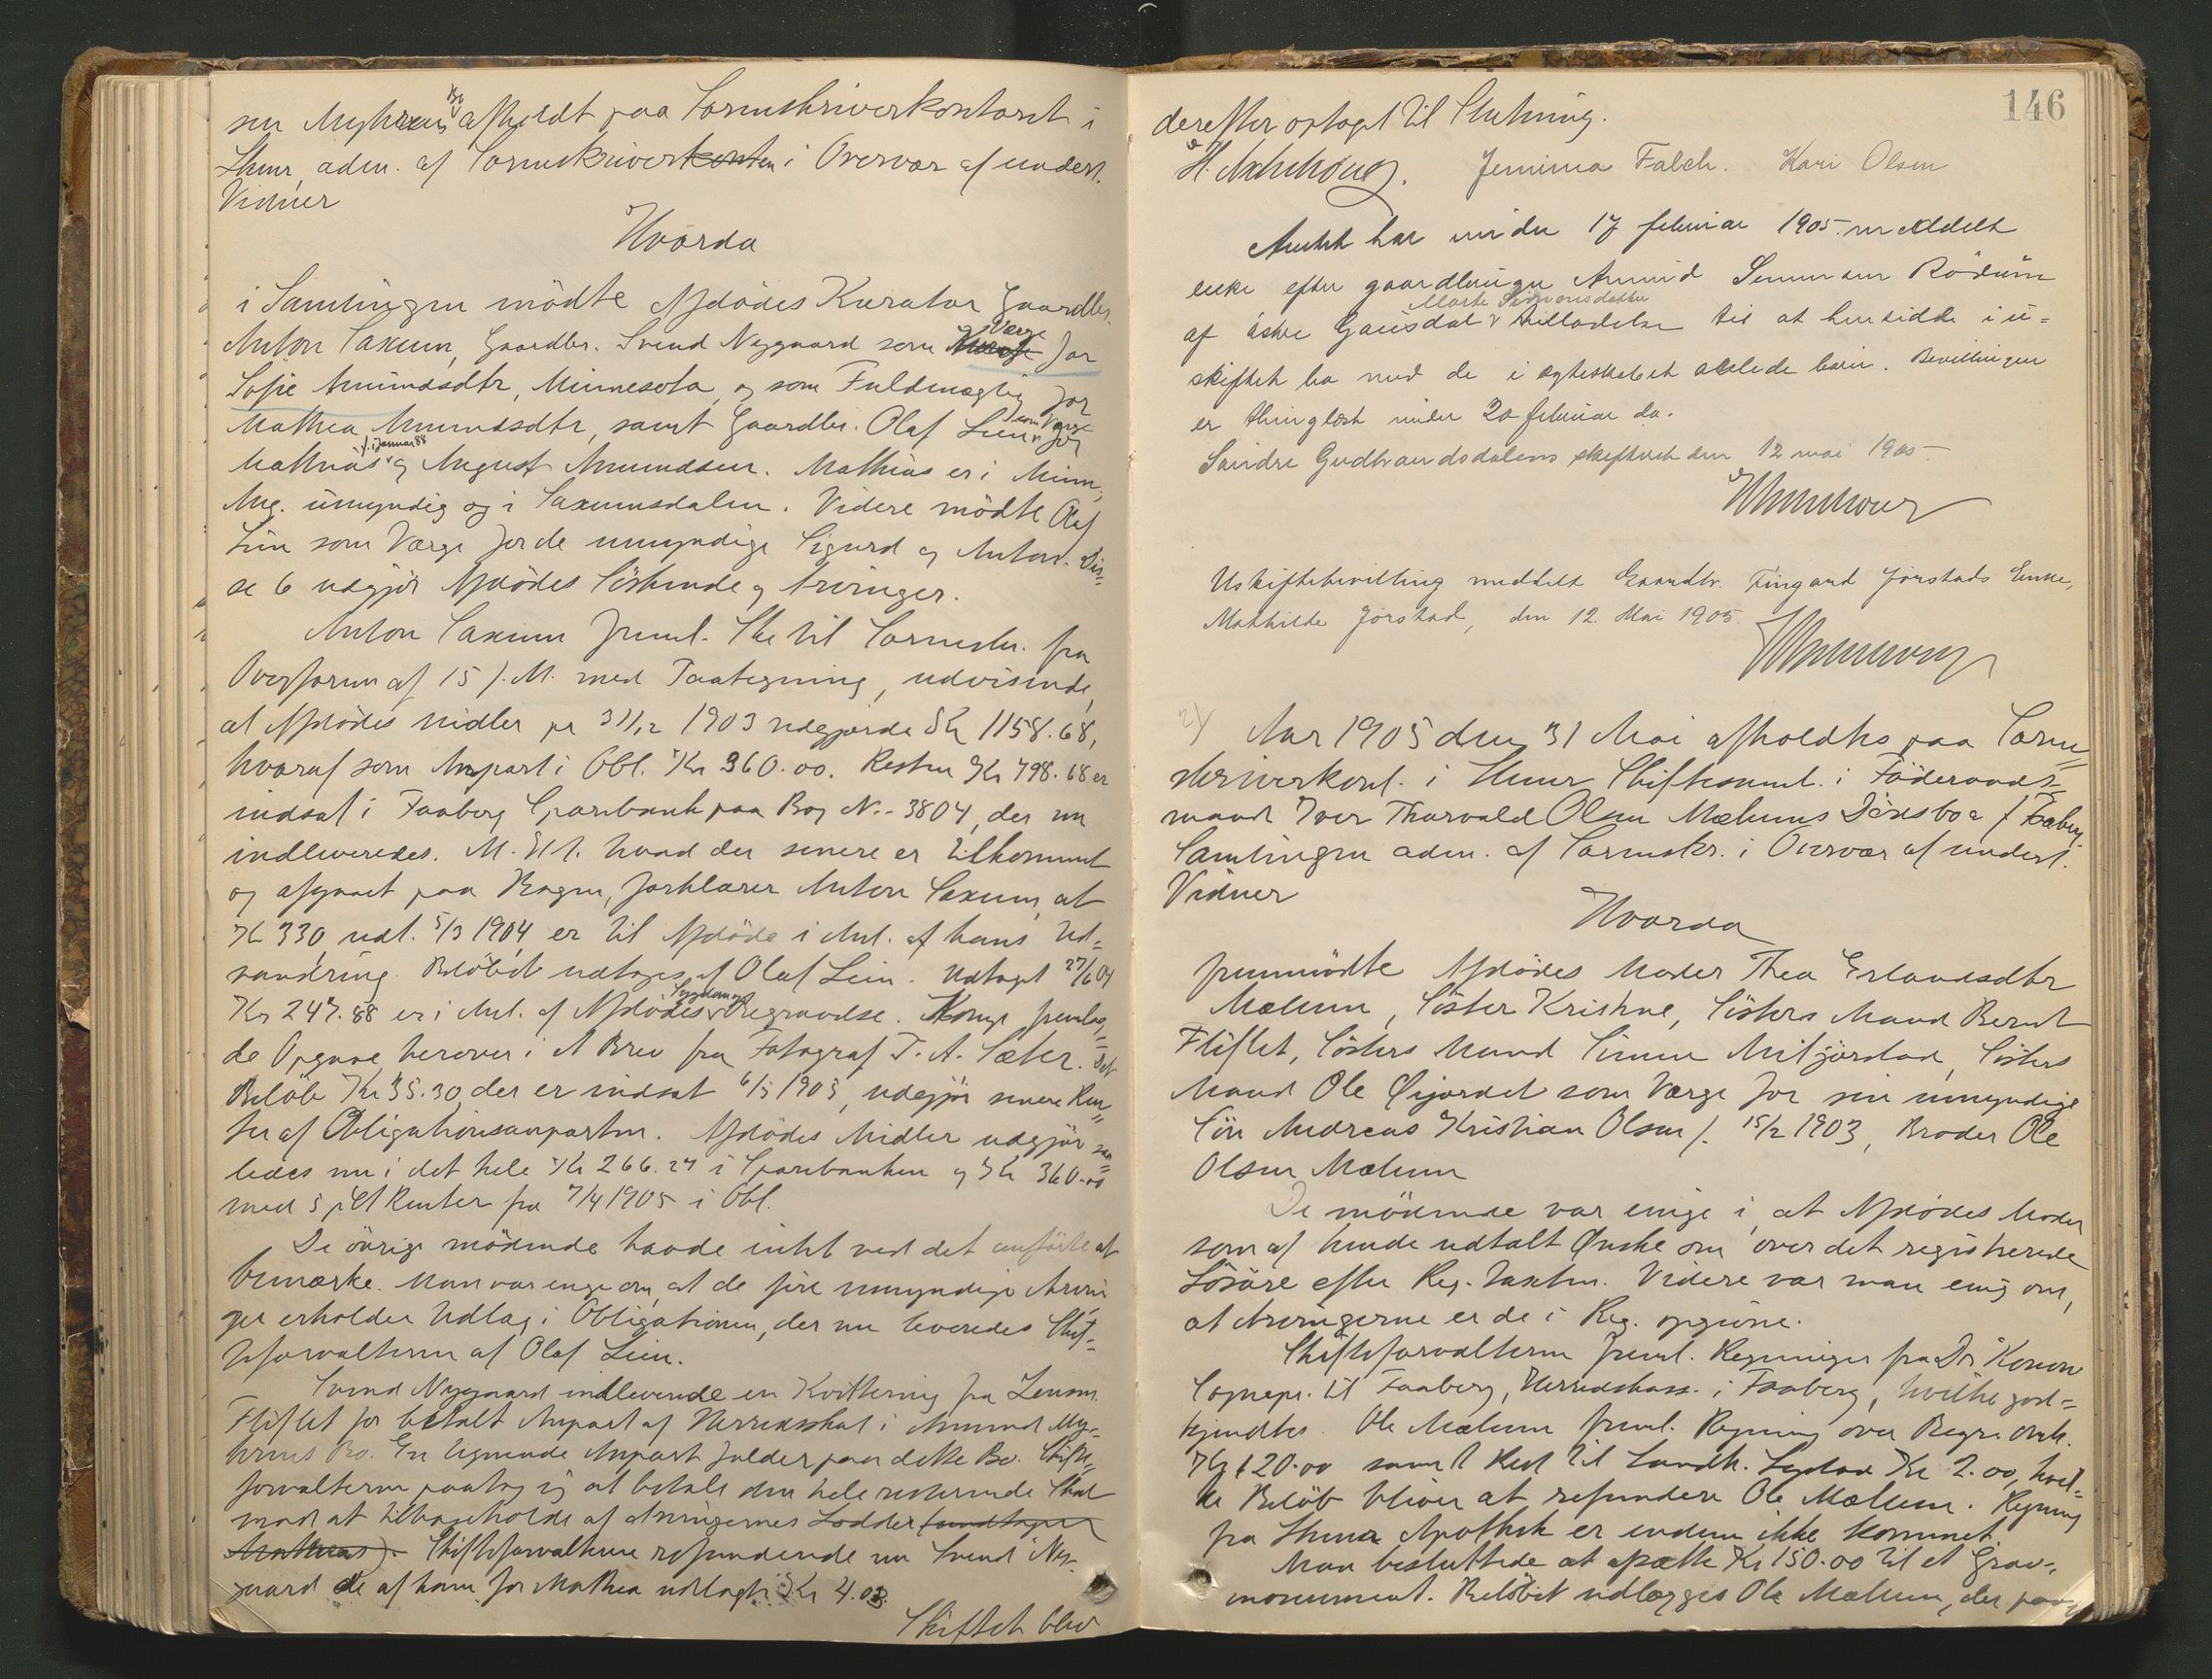 sen Myhrens Bo afholdt paa Sorenskriverkontoret i
Shmr, adm. af Sorenskriverkonten i Overvær af undert.
Vidner
Hvorda
i Samlingen mödte Afdödes Kurator Gaardbr.
Anton Saxum, Gaardbr. Svend Nygaard som Værge for
Sofie Amundsdtr, Minnesota, og som Fuldmægtig for
Mathea Amundsdtr, samt Gaardbr. Olaf Lien som Værge for
Mathias f. i Januar 88 og August Amundsen. Mathias er i Minn,
Aug. umyndig og i Saxumsdalen. Videre mödte Olaf
Lien som Værge for de umyndige Sigurd og Anton. Dis=
se 6 udgjör Afdödes Söskende og Arvinger.
Anton Saxum freml. Skr til Sorenskr. fra
Overform af 15 f. M. med Paategning, udvisende,
at Afdödes Midler pr 31/12 1903 udgjorde Kr 1158.68,
hvoraf som Anpart i Obl. Kr 360.00. Resten Kr 798.68 er
indsat i Faaberg Sparebank paa Bog N. 3804, der nu
indleveredes. M. H. t. hvad der senere er tilkommet
og afgaaet paa Bogen, forklarer Anton Saxum, at
Kr 330, udt. 5/3 1904 er til Afdöde i Anl. af hans Ud=
vandring. Belöbet udtoges af Olaf Lien. Udtaget 27/6 04
Kr 247.88 er i Anl. af Afdödes Sygdom og Begravelse. Komp fremlag=
de Opgave herover i et Brev fra Fotograf T. A. Sæter. Det
Belöb Kr 35.30, der er indsat 6/5 1905, udgjör senere Ren=
ter af Obligationsanparten. Afdödes Midler udgjör saa=
ledes nu i det hele Kr 266.27 i Sparebanken og Kr 360.00
med 5 pCt Renter fra 7/4 1905 i Obl.
De övrige mödende havde intet ved det anförte at
bemærke. Man var enige om, at de fire umyndige Arvin
ger erholder Udlæg i Obligationen, der nu leveredes Skif=
teforvalteren af Olaf Lien.
Svend Nygaard indleverede en Kvittering fra Lensm.
Fliflet for betalt Anpart af Herredsskat i Amund My=
hrens Bo. En lignende Anpart falder paa dette Bo. Skifte=
forvalteren paatog sig at betale den hele resterende Skat
mod at tilbageholde af Arvingernes Lodder (undtagen
Mathias). Skifteforvalteren refunderede nu Svend Ny=
gaard de af ham for Mathea udlagte Kr 4.03.
Skiftet blev
146
derefter optaget til Slutning.
Jemima Falch. Kari Olsen
Amtet har under 17 februar 1905 meddelt
enke efter gaardbruger Amund Simensen Rödum
af östre Gausdal Marte Simensdatter tilladelse til at hensidde i u=
skiftet bo med de i egteskabet avlede barn. Bevillingen
er thinglæst under 20 februar da.
Söndre Gudbrandsdalens skifteret den 12 mai 1905
Uskiftebevilling meddelt Gaardbr. Fingard Jörstads Enke,
Mathilde Jörstad, den 12. Mai 1905.
24 Aar 1905 den 31 Mai afholdtes paa Soren=
skriverkont. i Hmr Skiftesaml. i Föderaads=
mand Iver Thorvald Olsen Mælums Dödsbo af Faaberg.
Samlingen adm. af Sorenskr. i Overvær af undert.
Vidner
Hvorda
fremmödte Afdödes Moder Thea Erlandsdtr
Mælum, Söster Kristine, Sösters Mand Bernt
Fliflet, Sösters Mand Simen Mitjördet, Sösters
Mand Ole Öijordet som Værge for sin umyndige
Sön Andreas Kristian Olsen f. 15/2 1903, Broder Ole
Olsen Mælum
De mödende var enige i, at Afdödes Moder
som af hende udtalt Ønske om over det registrerede
Lösöre efter Reg. Taxten. Videre var man enig om,
at Arvingerne er de i Reg. opgivne.
Skifteforvalteren freml. Regninger fra Dr Konow
Sognepr. til Faaberg, Herredskass. i Faaberg, hvilke god=
kjendtes. Ole Mælum freml. Regning over Begr. Omk.
Kr 120.00 samt Rest til Landh. Lysdad Kr 2.00, hvil=
ke Belöb bliver at refundere Ole Mælum. Regning
fra Hmr Apothek er endnu ikke kommet.
Man besluttede at afsætte Kr 150.00 til et Grav=
monument. Belöbet udlægges Ole Mælum, der paa=